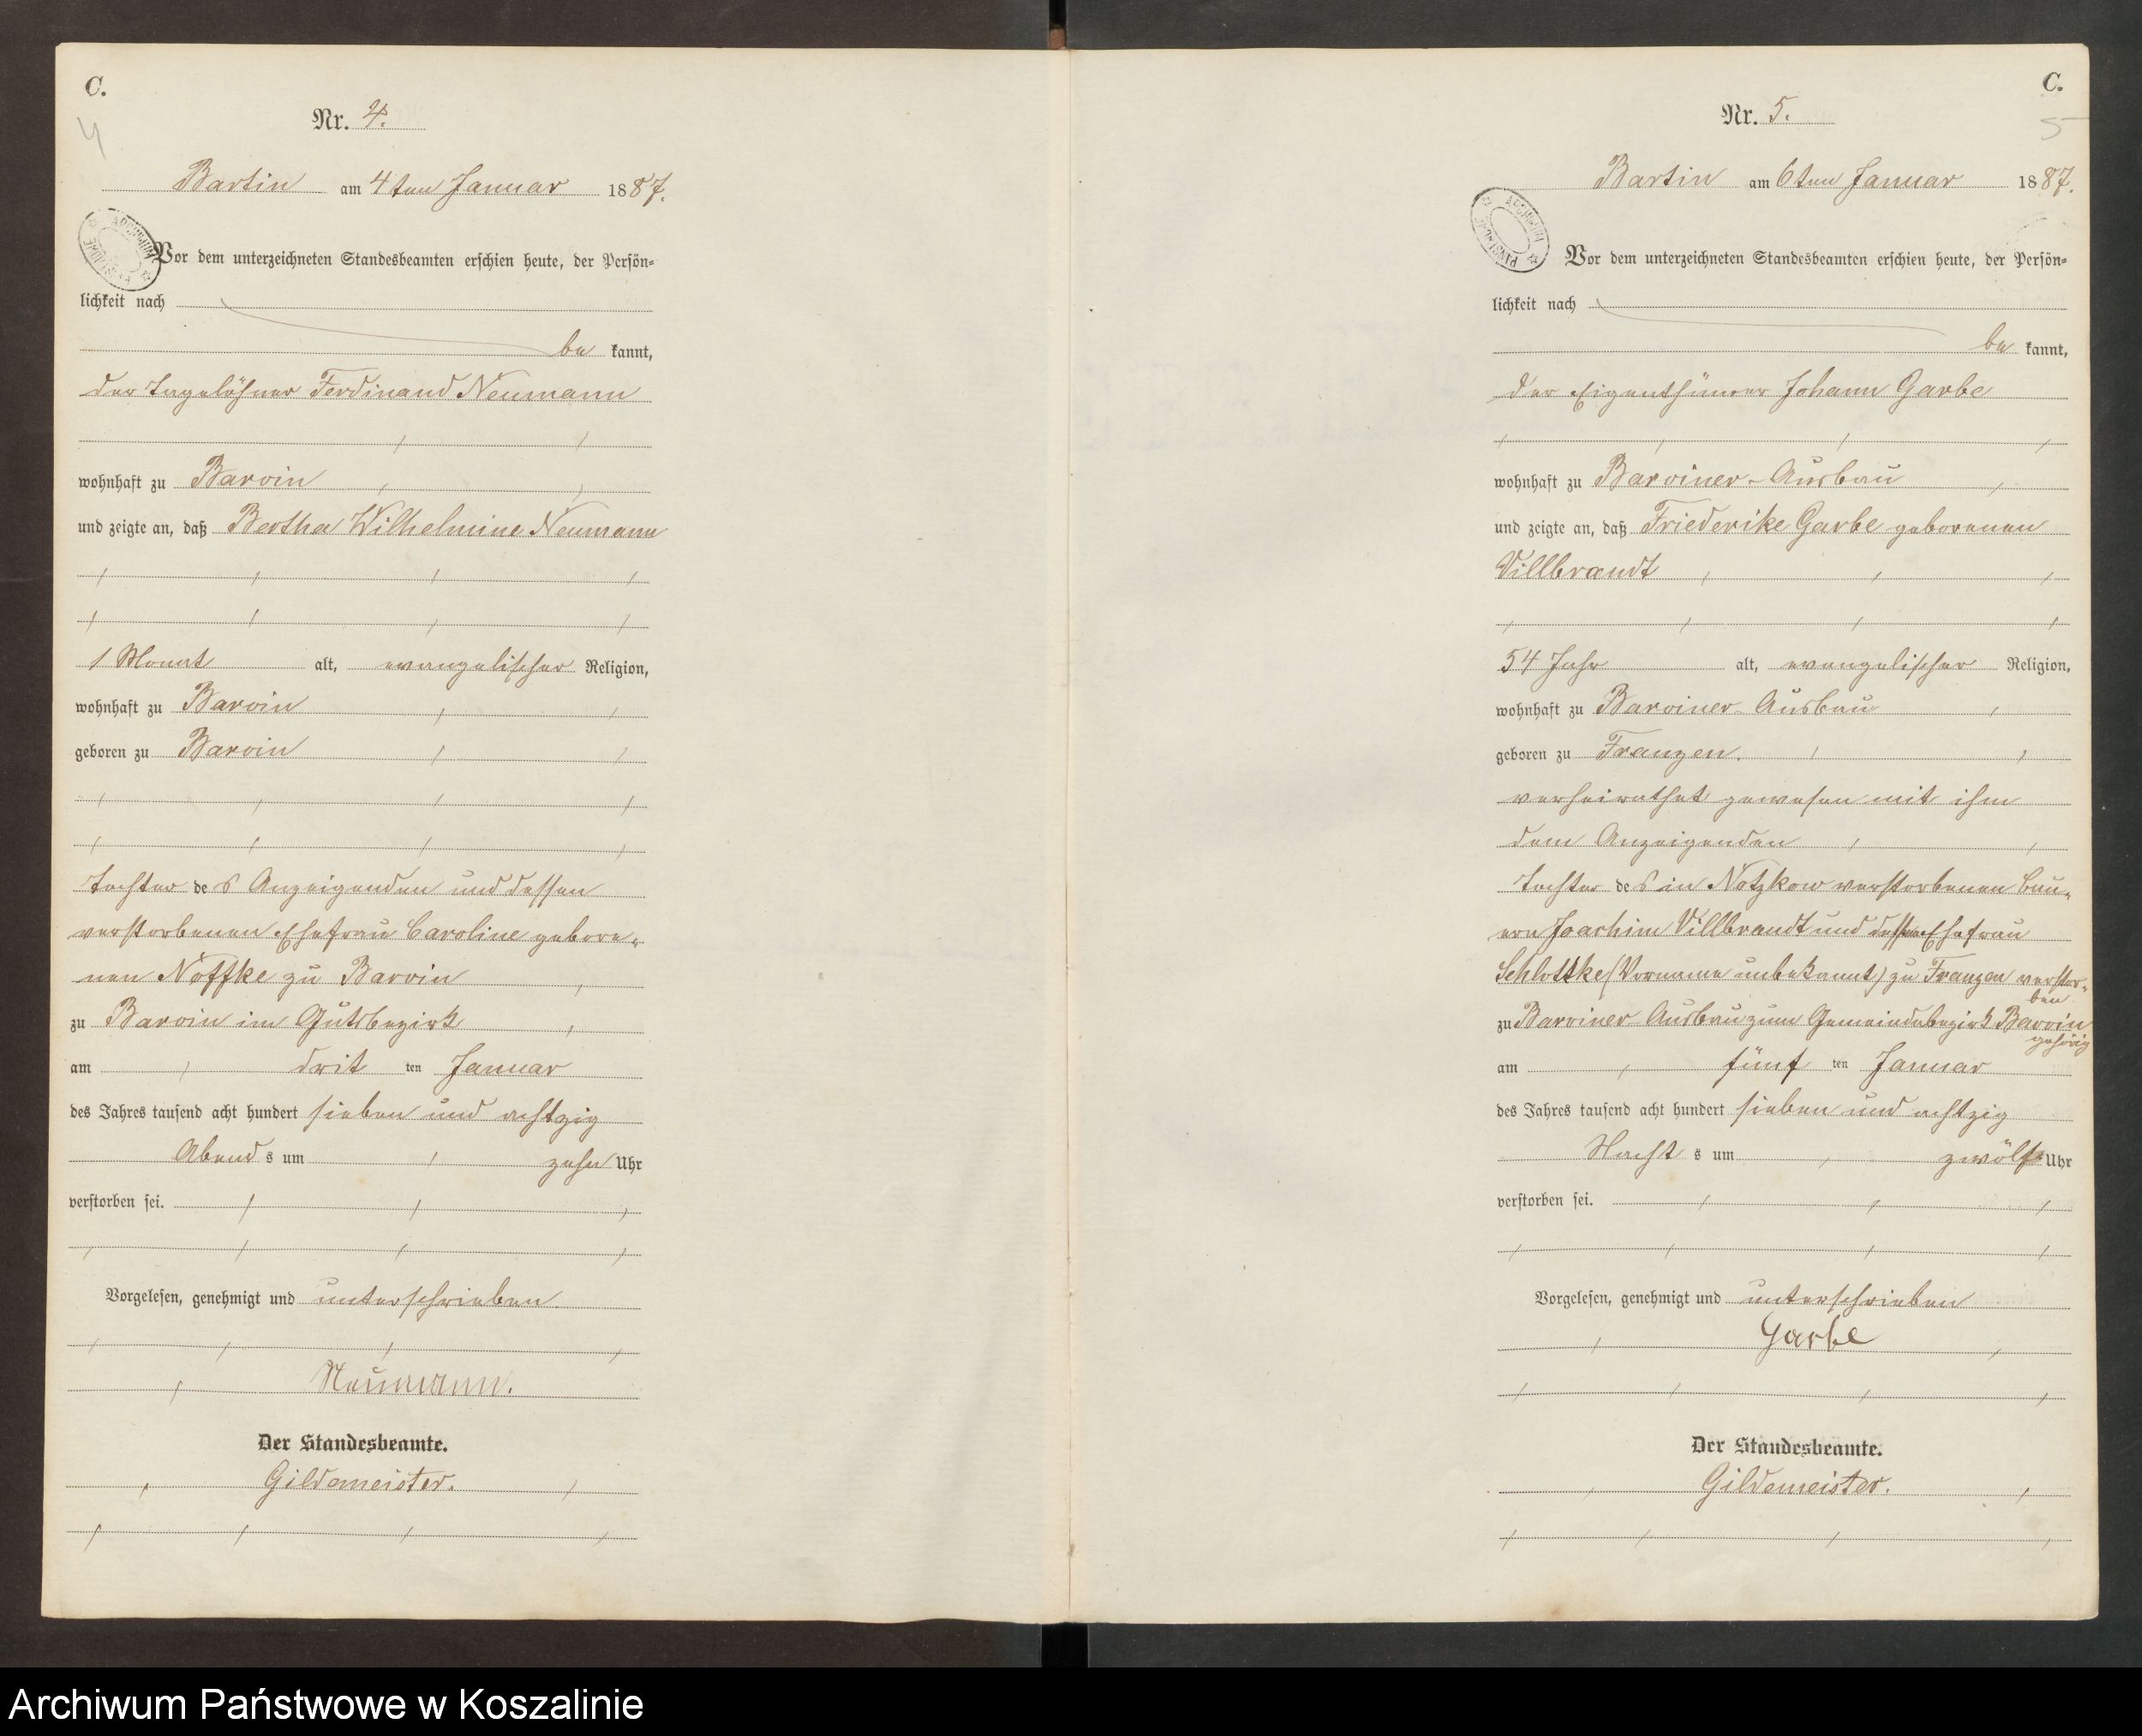 C.
4
Nr. 4.
Bartin am 4ten Januar 1887.
Vor dem unterzeichneten Standesbeamten erschien heute, der Persön=
lichkeit nach
be kannt,
der Tagelöhner Ferdinand Neumann
wohnhaft zu Barvin
und zeigte an, daß Bertha Wilhelmine Neumann
1 Monat alt, evangelischer Religion,
wohnhaft zu Barvin
geboren zu Barvin
Tochter des Anzeigenden und dessen
verstorbenen Ehefrau Caroline gebore=
nen Noffke zu Barvin
zu Barvin im Gutsbezirk
am drit ten Januar
des Jahres tausend acht hundert sieben und achtzig
Abend s um zehn Uhr
verstorben sei.
Vorgelesen, genehmigt und unterschrieben
Neumann.
Der Standesbeamte.
Gildemeister.
C.
5
Nr. 5.
Bartin am 6ten Januar 1887.
Vor dem unterzeichneten Standesbeamten erschien heute, der Persön=
lichkeit nach
be kannt,
der Eigenthümer Johann Garbe
wohnhaft zu Barviner-Ausbau
und zeigte an, daß Friederike Garbe geborenen
Villbrandt
54 Jahr alt, evangelischer Religion,
wohnhaft zu Barviner-Ausbau
geboren zu Franzen.
verheirathet gewesen mit ihm
dem Anzeigenden
Tochter des in Notzkow verstorbenen Bau=
ern Joachim Villbrandt und dessen Ehefrau
Schlottke (Vorname unbekannt) zu Franzen verstor=
ben
zu Barviner-Ausbau zum Gemeindebezirk Barvin
gehörig
am fünf ten Januar
des Jahres tausend acht hundert sieben und achtzig
Nacht s um zwölf Uhr
verstorben sei.
Vorgelesen, genehmigt und unterschrieben
Garbe
Der Standesbeamte.
Gildemeister.
Archiwum Państwowe w Koszalinie